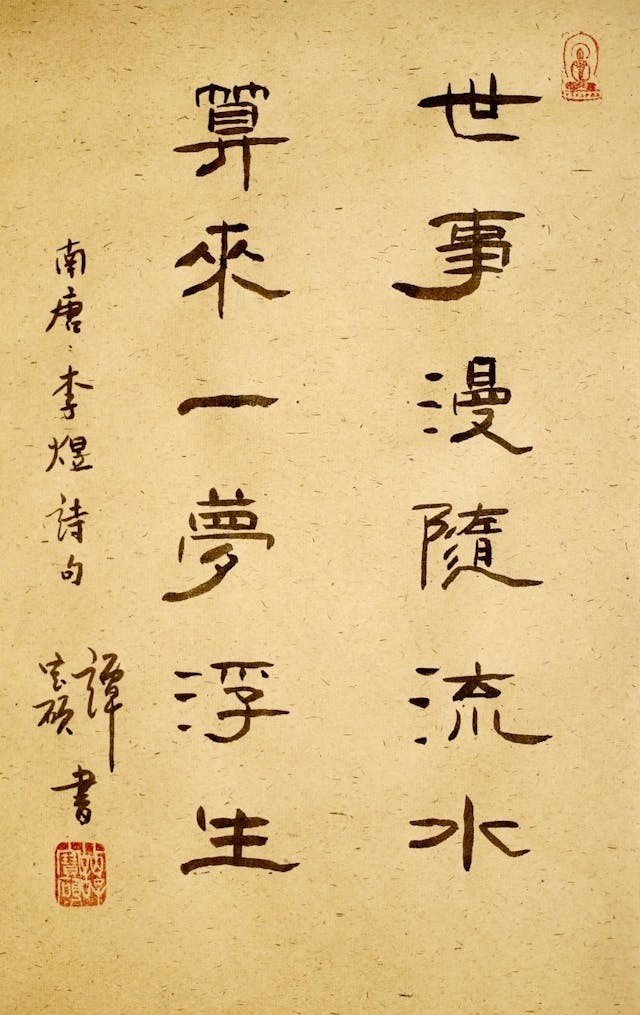 世事漫隨流水
算來一夢浮生
南唐、李煜詩句
譚寶碩書